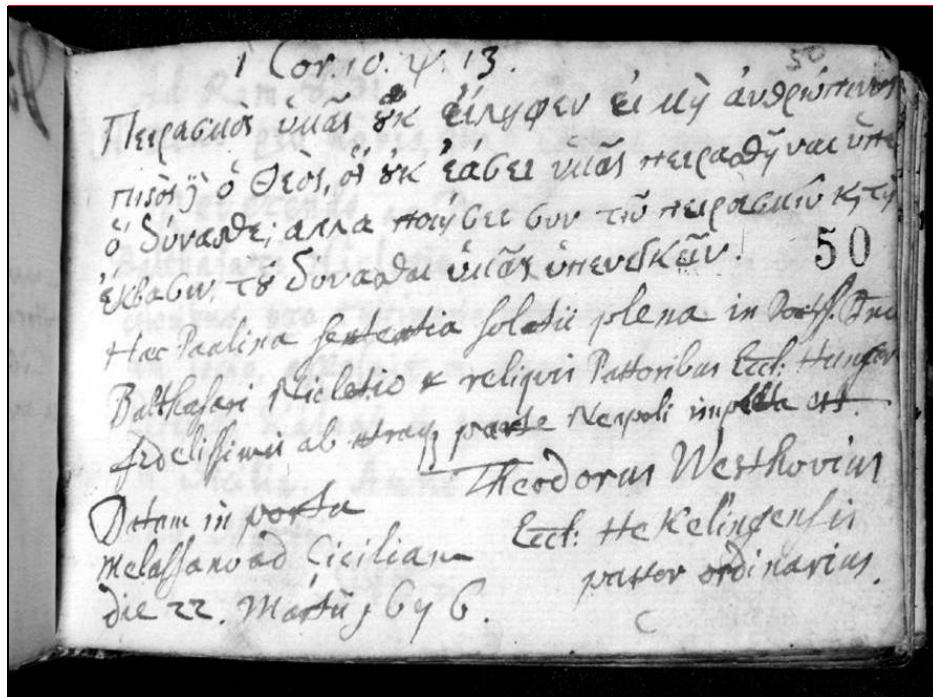 1 Cor. 10. ψ. 13.
50
Πειρασμὸς ὑμᾶς ȣκ εἴληφεν εἰ μὴ ἀνθρώπινος
πιςὸς ὁ Θεὸς, ὃς ȣκ ἐάσει ὑμᾶς πειρασθῆναι ὑπὲ
ὃ δύνασθε; αλλα ποιήσει συν τῷ πειρασμῷ ϗ τὴ
ἔκβασιν, τȣ δυνασθαι ὑμᾶς ὑπενεγκεῖν.
50
Hæc Paulina sententia solatii plena in
Balthasari Nicletio & reliquis Pastoribus Eccl: Hungar
fidelissimis ab utraq parte Neapoli impleta est.
Theodorus Westhovius
Datam in porta
Eccl: Hekelingensis
Melassano ad Ciciliam
pastor ordinarius.
die 22. Martii 1676.